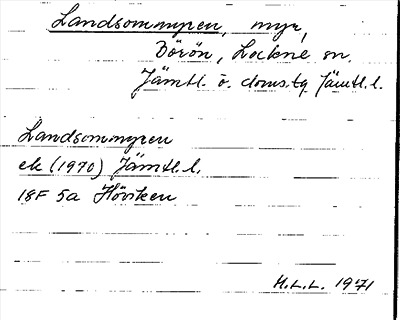 Landsommyren, myr,
Börön, Lockne sn.
Jämtl. ö. doms.tg Jämtl. l.
Landsommyren
ek (1970) Jämtl. l.
18F 5a Höviken
H.L.L. 1971